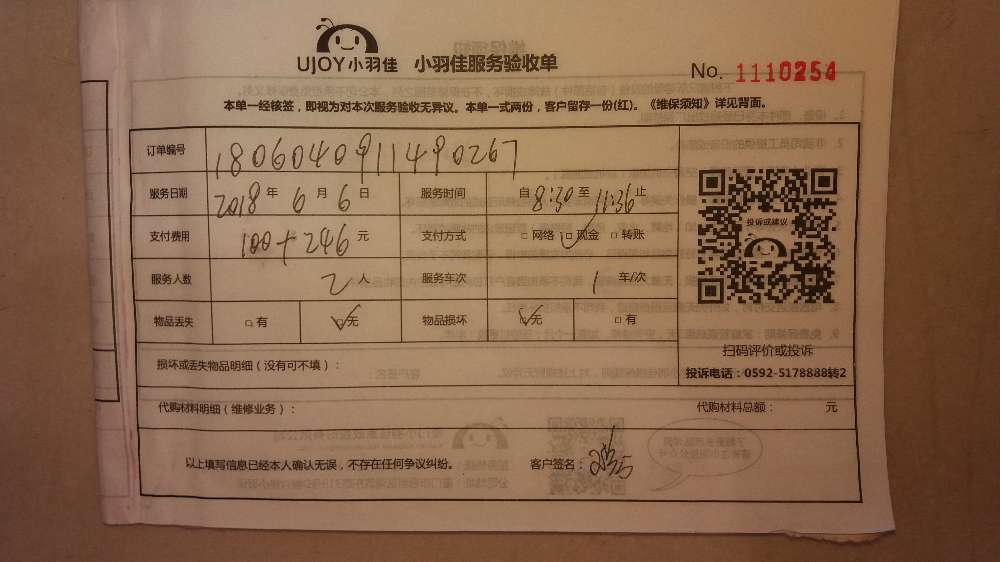 UJOY小羽佳 小羽佳服务验收单
No. 1110254
本单一经核签，即视为对本次服务验收无异议。本单一式两份，客户留存一份(红)。《维保须知》详见背面。
订单编号 1806040911490267
服务日期 2018年6月6日 服务时间 自8:30至11:36止
支付费用 100+246元 支付方式 □网络 ☑现金 □转账
服务人数 2人 服务车次 1车/次
物品丢失 □有 ☑无 物品损坏 ☑无 □有
投诉或建议
扫码评价或投诉
投诉电话：0592-5178888转2
损坏或丢失物品明细（没有可不填）：
代购材料明细（维修业务）： 代购材料总额： 元
以上填写信息已经本人确认无误，不存在任何争议纠纷。 客户签名：